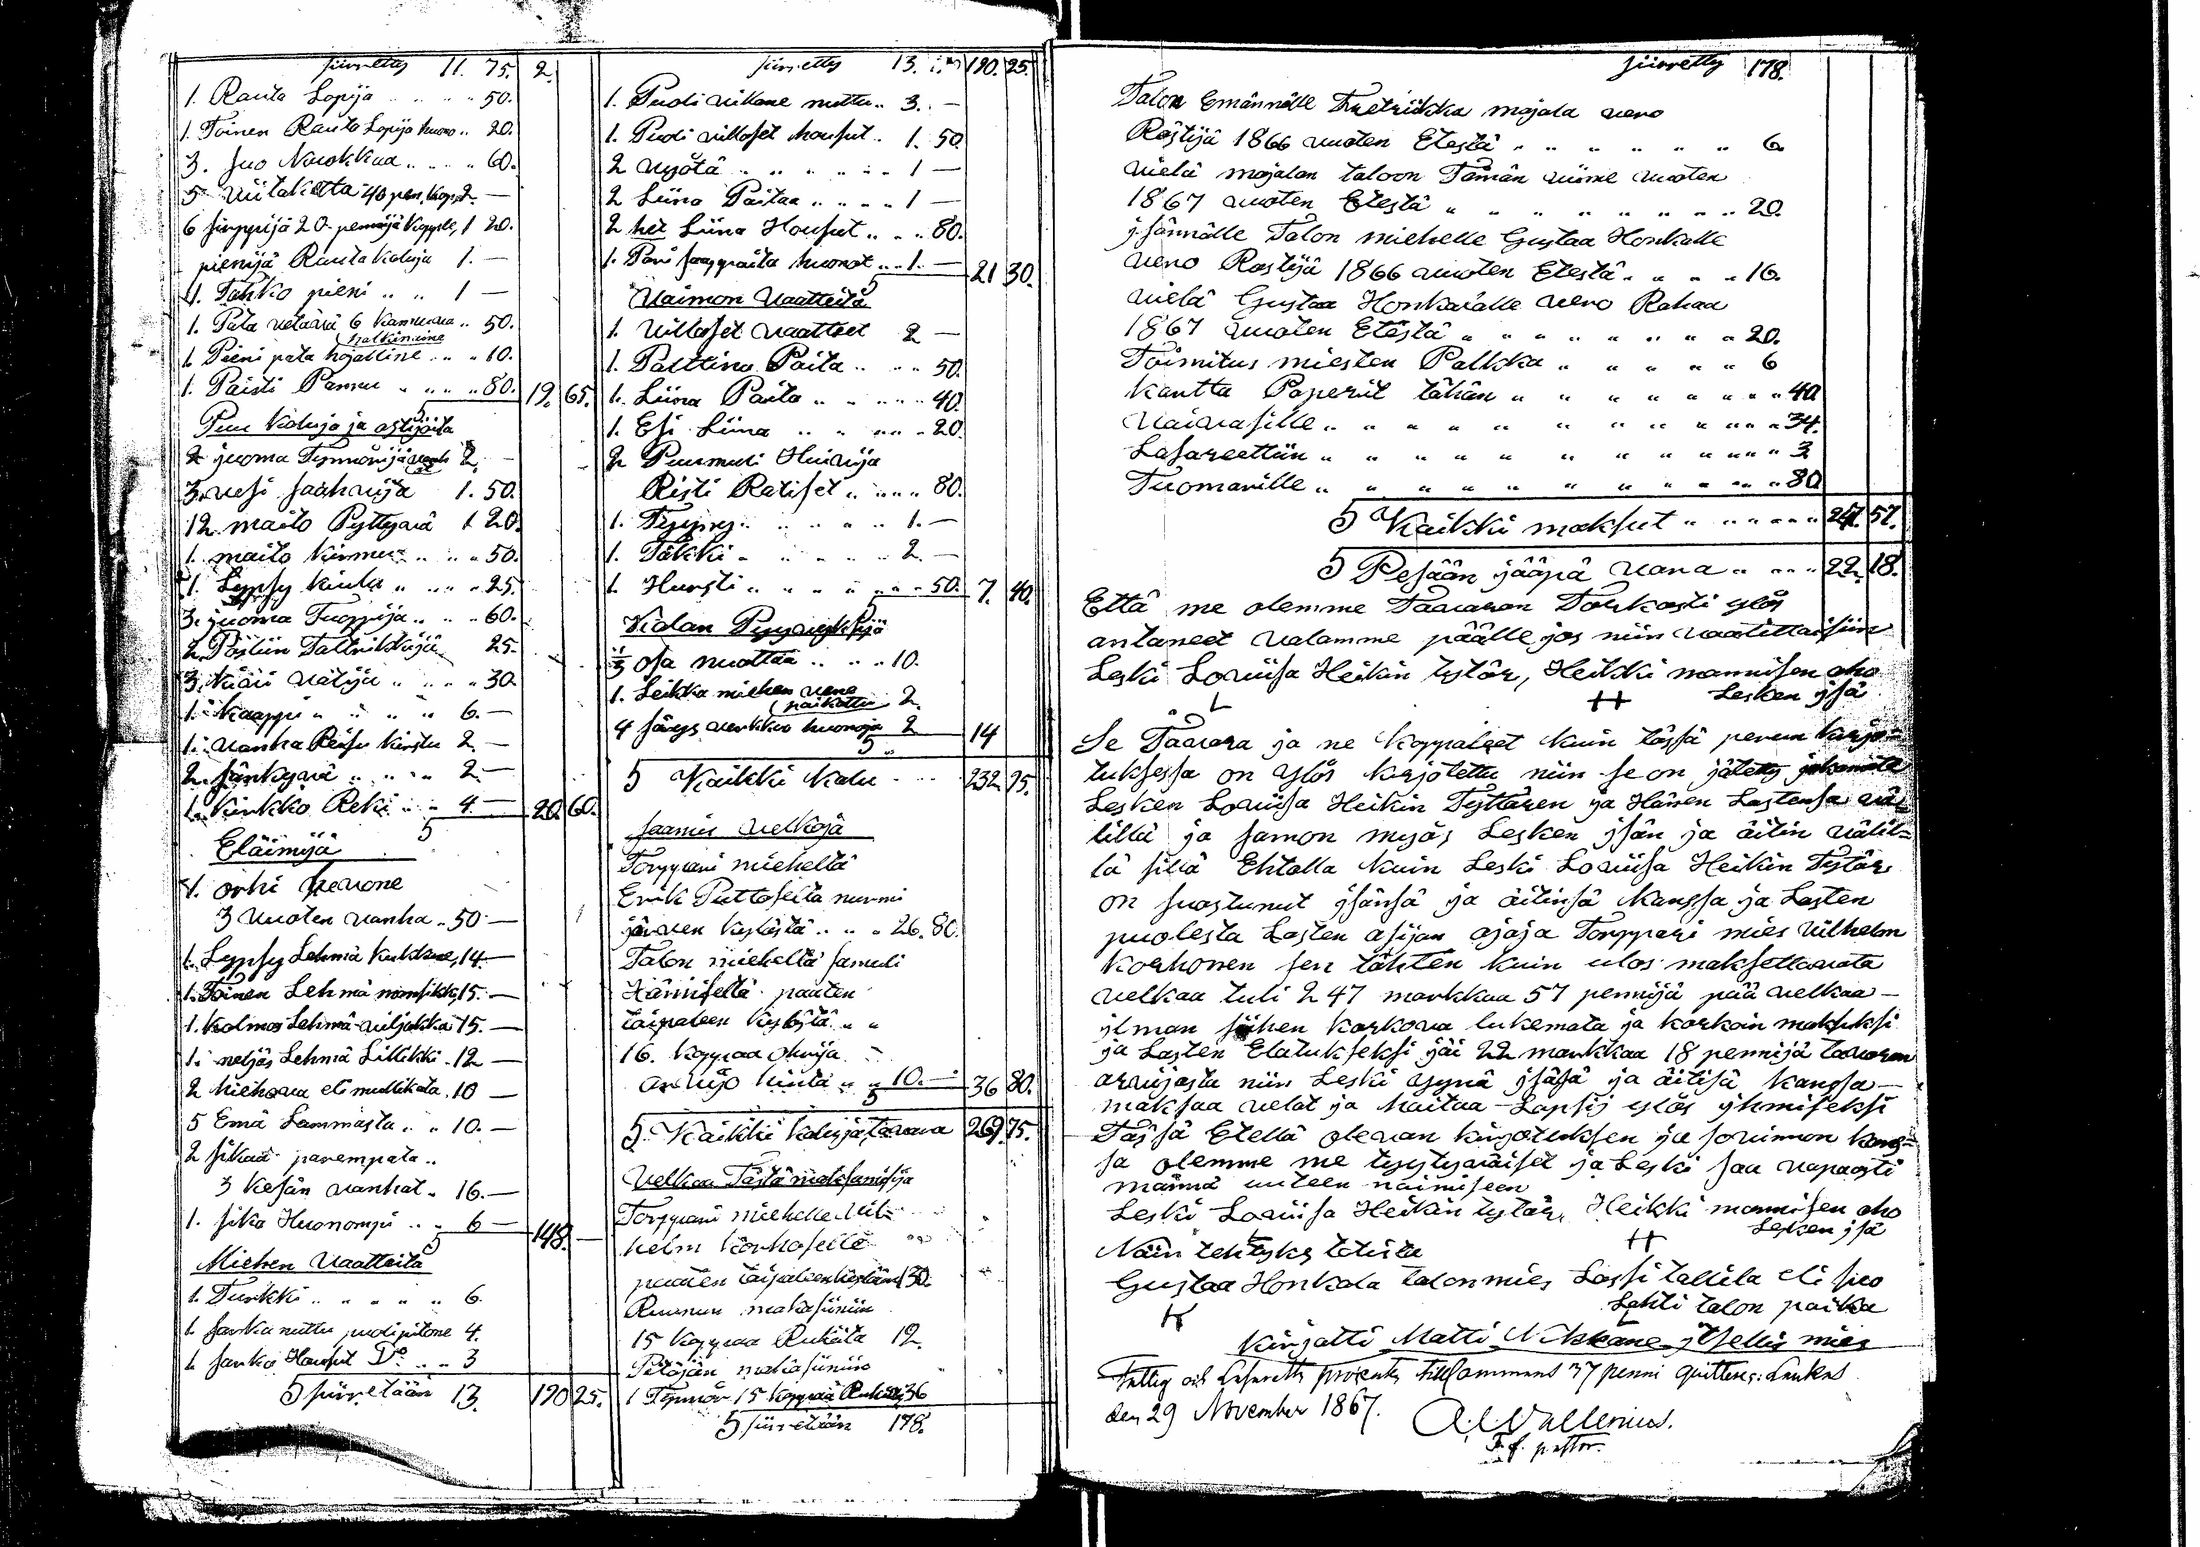 siirretty 11. 75. 2.
1. Rauta Lopija .. .. .. 50.
1. Toinen Rauta Lopija huono .. 20.
3. suo Kuokkaa .. .. .. 60.
5 viitaketta 40 pen. kap. 2. —
6 sirppijä 20 pennijä kappale, 1 20.
pienijä Rauta kaluja 1. —
1. Tahko pieni .. .. 1 —
1. Pata vetävä 6 kannuva .. 50.
halkinaine
1. Pieni pata hojalline .. .. 10.
1. Paisti Pannu .. .. .. 80. 19. 65.
Puu Kaluja ja astijoita
2 juoma Tynnörijä 2. —
3. vesi saahvija 1. 50.
12 maito Pyttyvä 1 20.
1. maito kirnu .. .. .. 50.
1. Lypsy kiulu .. .. .. 25.
3. juoma Tuoppija .. .. 60.
2. Pöytiin Faltrikkija 25.
3. Kääri vätijä .. .. .. 30.
1. Kaappi .. .. .. .. 6. —
1. vanha Reisu kirstu 2 —
2. sänkyvä .. .. .. 2 —
1. Kirkko Reki .. .. 4 — 20. 60.
Eläimijä
1. orhi hevone
3 vuoten vanha .. 50 —
1. Lypsy Lehmä kuldane, 14 —
1. Toinen Lehmä mansikki, 15. —
1. kolmas Lehmä viljakka 15. —
1. neljäs Lehmä Lillikki .. 12 —
2 hiehova eli mullikata .. 10 —
5 Emä Lammasta .. .. 10. —
2 sikaa parempata ..
3 kesän vanhat .. 16. —
1. sika Huonompi .. .. 6 — 148. —
Miehen vaatteita
1. Turkki .. .. .. .. .. 6.
1. sarka nuttu puolipitone 4.
1. sarka Housut Do .. .. 3
S siirretään 13. 190 25.
siirretty 13. 190. 25.
1. Puoli villane nuttu .. 3. —
1. Puoli villaset housut .. 1. 50
2 vyötä .. .. .. .. .. 1 —
2 Liina Paitaa .. .. .. 1 —
2 het Liina Housut .. .. .. 80.
1. Pari saappaita huonot .. 1. — 21 30.
Vaimon Vaatteita
1. Villaset vaatteet 2 —
1. Palttina Paita .. .. .. 50.
1. Liina Paita .. .. .. .. 40.
1. Esi Liina .. .. .. .. 20.
2 Puumuli Huivija
Risti Ratiset .. .. .. 80.
1. Tyyny .. .. .. .. .. 1. —
1. Täkki .. .. .. .. .. 2 —
1. Hursti .. .. .. .. .. 50. 7. 40.
Kalan Pyyvyksijä
1/3 osa nuottaa .. .. .. 10.
1. Leikka miehen vene
paikattu 2.
4 särys verkkoo huonoja 2 14
S Kaikki kalu .. .. 232 95.
saamis velkoja
Torppari mieheltä
Erik Puttoselta nurmi
järven kylästä .. .. .. 26. 80.
Talon mieheltä samuli
Hänniseltä paaten
taipaleen kylästä .. ..
16. kappaa ohrija
arvijo hinta .. .. 10. — 36 80.
S. Kaikki kalu ja tavara 269. 75.
Velkaa Tästä maksamisija
Torppari miehelle Vil-
helm korhoselle
paaten taipaleen kylään 130.
Ruunun makasiiniin
15 kappaa Rukiita 12.
Pitäjän makasiiniin
1 Tynnör 15 kappaa Rukeita 36
S siirretään 178.
siirretty 178.
Talon Emännälle Fretriikka majala vero
Rästijä 1866 vuoten Etestä .. .. .. .. .. 6.
vielä majalan taloon Tämän viime vuoten
1867 vuoten Etestä .. .. .. .. .. .. 20.
jsännälle Talon miehelle Gustaa Honkalle
vero Rastijä 1866 vuoten Etestä .. .. .. 16.
vielä Gustaa Honkalalle vero Rahaa
1867 vuoten Etestä .. .. .. .. .. .. 20.
Toimitus miesten Palkka .. .. .. .. .. 6
kautta Paperit tähän .. .. .. .. .. .. 40
Vaivasille .. .. .. .. .. .. .. .. 34.
Lasareettiin .. .. .. .. .. .. .. .. 3
Tuomarille .. .. .. .. .. .. .. .. 80
S Kaikki maksut .. .. .. .. 247. 57.
S Pesään jääpä vara .. .. .. 22. 18.
Että me olemme Taavaran Tarkasti ylös
antaneet valamme päälle jos niin vaatittaisiin
Leski Loviisa Heikin tytär, Heikki mannisen aho
Lesken jsä
Se Taavara ja ne kappaleet kuin tässä perun kirjo=
tuksessa on ylös kirjotettu niin se on jätetty
Lesken Loviisa Heikin Tyttären ja Hänen Lastensa vä=
lillä ja samon myös Lesken jsän ja äitin välil=
lä sillä Ehtolla kuin Leski Loviisa Heikin Tytär
on suostunut jsänsä ja äitinsä kanssa ja Lasten
puolesta Lasten asijan ajaja Torppari mies Vilhelm
korhonen sen tähten kuin ulos maksettavata
velkaa tuli 247 markkaa 57 pennijä pää velkaa —
ilman siihen korkova lukemata ja korkoin maksuksi
ja Lasten Elatukseksi jäi 22 markkaa 18 pennijä tavaran
arvijosta niin Leski ynnä jsäsä ja äitisä kanssa —
maksaa velat ja hoitaa Lapsis ylös jhmiseksi
Tässä Etellä olevan kirjotuksen ja sovinnon kans=
sa olemme me tyytyväiset ja Leski saa vapaasti
männä uuteen naimiseen
Leski Loviisa Heikin tytär, Heikki mannisen aho
Lesken jsä
Näin tehtyks totista
Gustaa Honkala talonmies Lassi tallila eli suo
Lahti talon poika
kirjotti Matti Nikkane jtsellis mies
Fattig och Lasaretts procents tillsammans 37 penni quitteras: Laukas
den 29 November 1867.
A. Wallenius.
T. f. pastor.